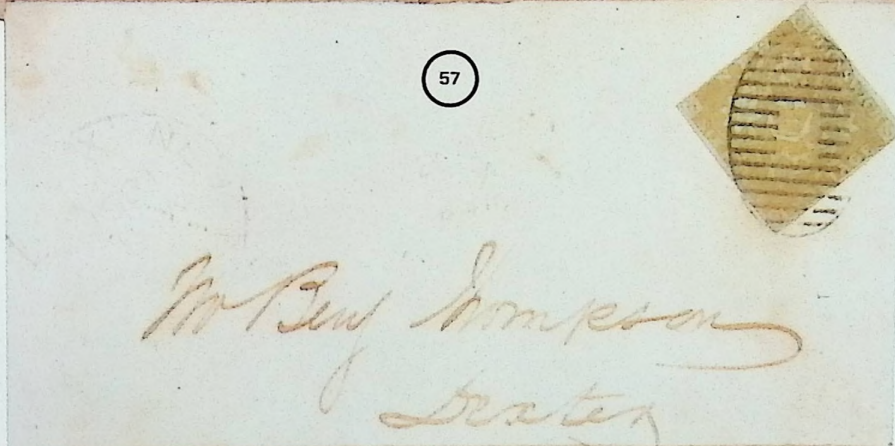 57
Mr Benj Thompson
Dexter